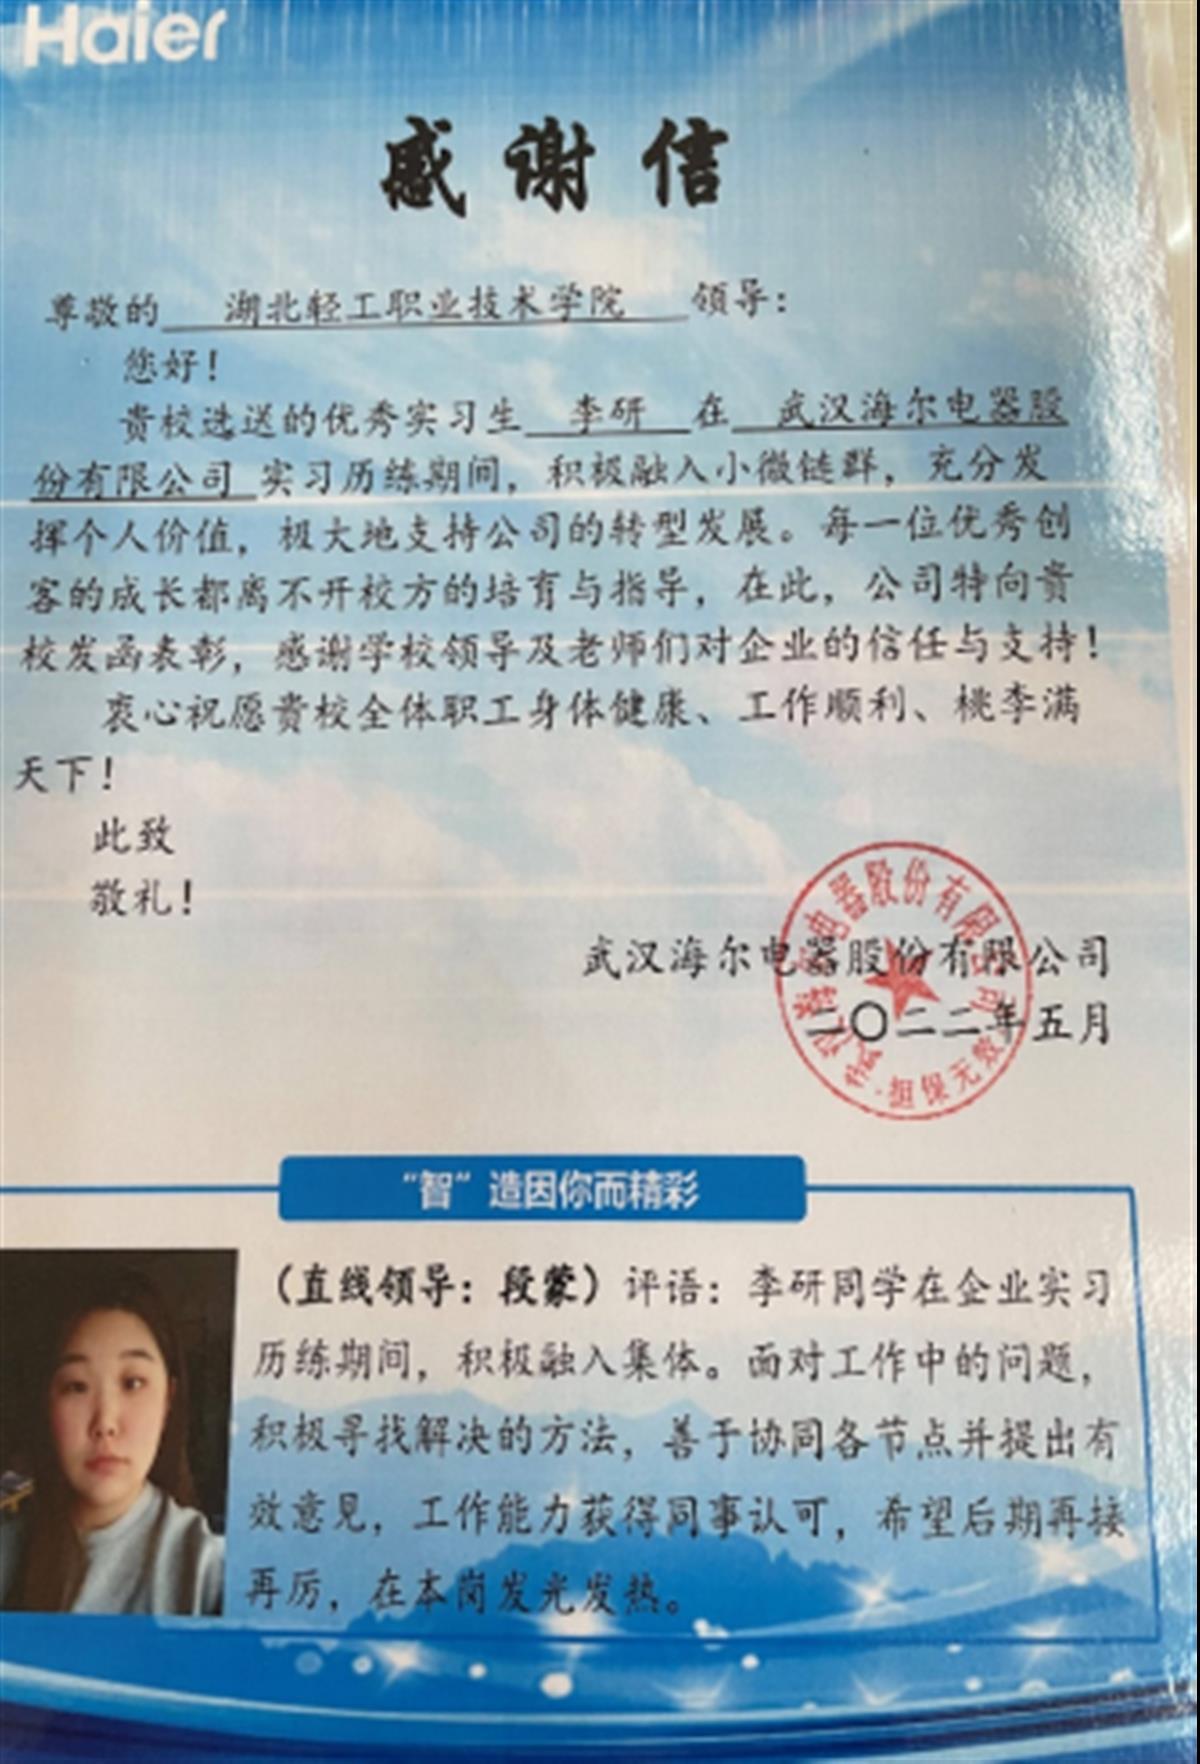 Haier
感谢信
尊敬的 湖北轻工职业技术学院 领导：
您好！
贵校选送的优秀实习生 李研 在 武汉海尔电器股
份有限公司 实习历练期间，积极融入小微链群，充分发
挥个人价值，极大地支持公司的转型发展。每一位优秀创
客的成长都离不开校方的培育与指导，在此，公司特向贵
校发函表彰，感谢学校领导及老师们对企业的信任与支持！
衷心祝愿贵校全体职工身体健康、工作顺利、桃李满
天下！
此致
敬礼！
武汉海尔电器股份有限公司
二〇二二年五月
电器股份有限公司
担保无效
“智”造因你而精彩
（直线领导：段蒙）评语：李研同学在企业实习
历练期间，积极融入集体。面对工作中的问题，
积极寻找解决的方法，善于协同各节点并提出有
效意见，工作能力获得同事认可，希望后期再接
再厉，在本岗发光发热。